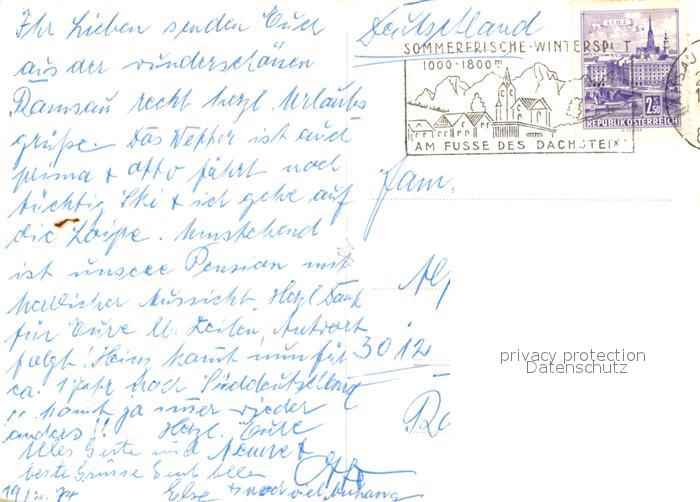 Ihr Lieben senden Euch
aus der wunderschönen
Ramsau recht herzl. Urlaubs
grüße. Das Wetter ist auch
prima + Otto fährt noch
tüchtig Ski + ich gehe auf
die Loipe. Umstehend
ist unsere Pension mit
herrlicher Aussicht. Herzl. Dank
für Eure lb. Zeilen, Antwort
folgt! Heinz kommt nun für
ca. 1 Jahr nach Süddeutschland
kommt ja immer wieder
anders!! Herzl. Eure
Alles Gute und
beste Grüsse Euch allen
Else
Deutschland
SOMMERFRISCHE · WINTERSPORT
1000-1800m
AM FUSSE DES DACHSTEIN
LINZ
2.50
REPUBLIK ÖSTERREICH
Fam.
3012
privacy protection
Datenschutz